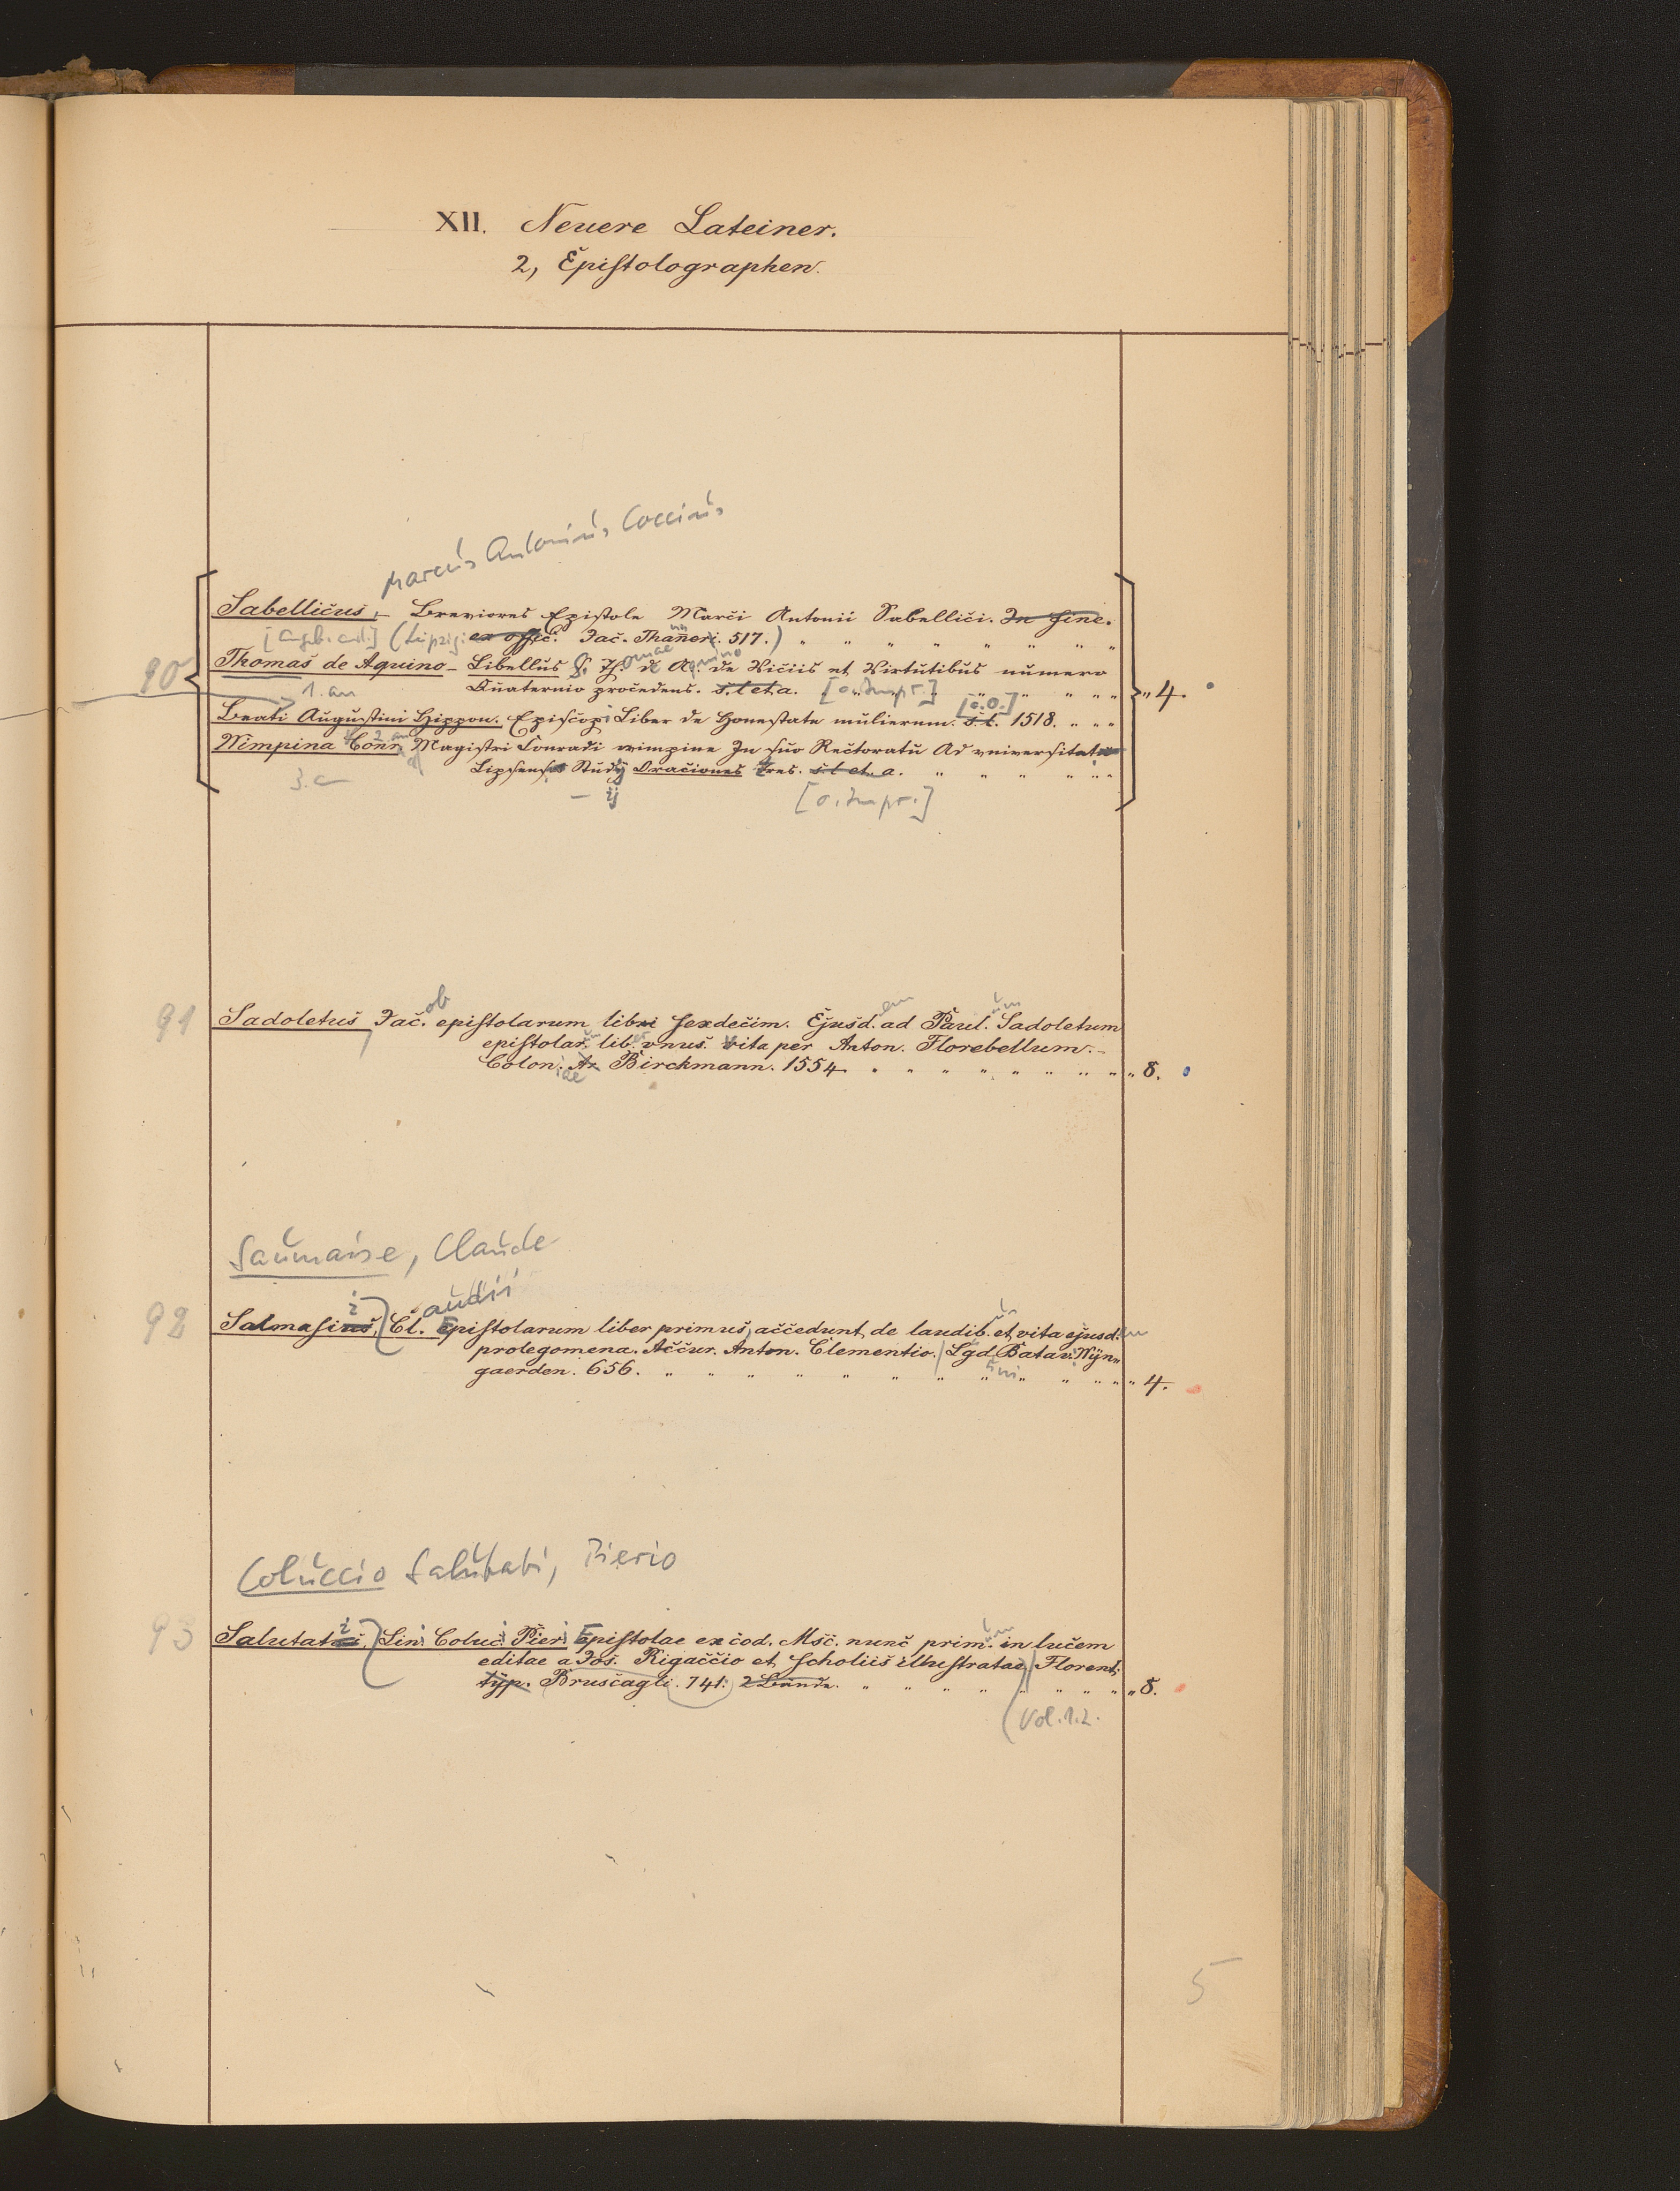 XII. Neuere Lateiner.
2, Epistolographen.
Marcus Antonius Coccius
Sabellicus, – Breviores Epistole Marci Antonii Sabellici. In fine.
(Leipzig: ex offic. Jac. Thanneri. 517.) " " " " " " " "
90
Thomas de Aquino – Libellus S. Thomae de Aquino de Viciis et Virtutibus numero
1. an
Quaternio procedens. s. l. et a. [o. Impr.] " " " " "
" 4.
Beati Augustini Hippon. Episcopi Liber de Honestate mulierum. s. l. [o. O.] 1518. " " "
2. an
Wimpina Conr. Magistri Conradi wimpine In suo Rectoratu Ad vniversitatem
3. a
Lipsensis Studij Oraciones tres. s. l. et. a. " " " " " "
– ij [o. Impr.]
91
Sadoletus, Jacob epistolarum libri sexdecim. Ejusdem ad Paulum Sadoletum
epistolarum liber vnus. Vita per Anton. Florebellum. –
Coloniae Ar. Birckmann. 1554 " " " " " " " " " 8.
Saumaise, Claude
92
Salmasius, i Cl.audii Epistolarum liber primus, accedunt, de laudib. et vita ejusd.em
prolegomena. Accur. Anton. Clementio. Lugd. Batav. Wijn„
gaerden. 656. " " " " " " " " " " " " 4.
Coluccio Salutati, Pierio
93
Salutati, Lini Coluci Pieri Epistolae ex cod. Msc. nunc primum in lucem
editae a Jos. Rigaccio et scholiis illustratae, Florent.
typ. Bruscagli. 741. 2 Bände. " " " " " " " " " 8.
(Vol. 1.2.
5